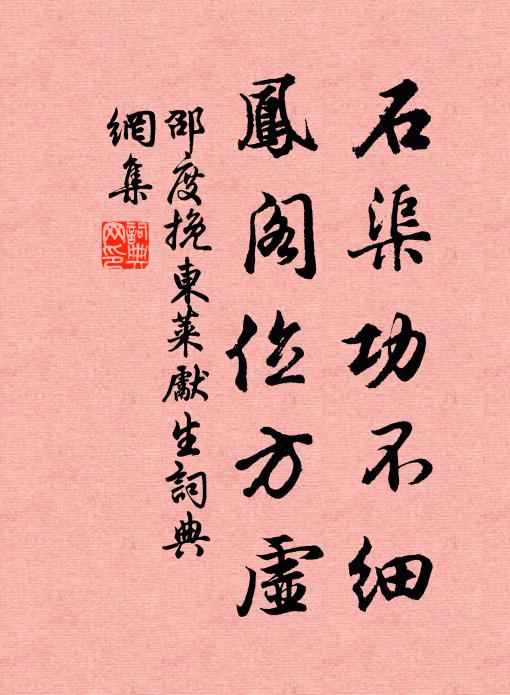 石渠功不細
鳳閣位方虛
邵度挽東萊獻生詞典
網集
詞典
网印